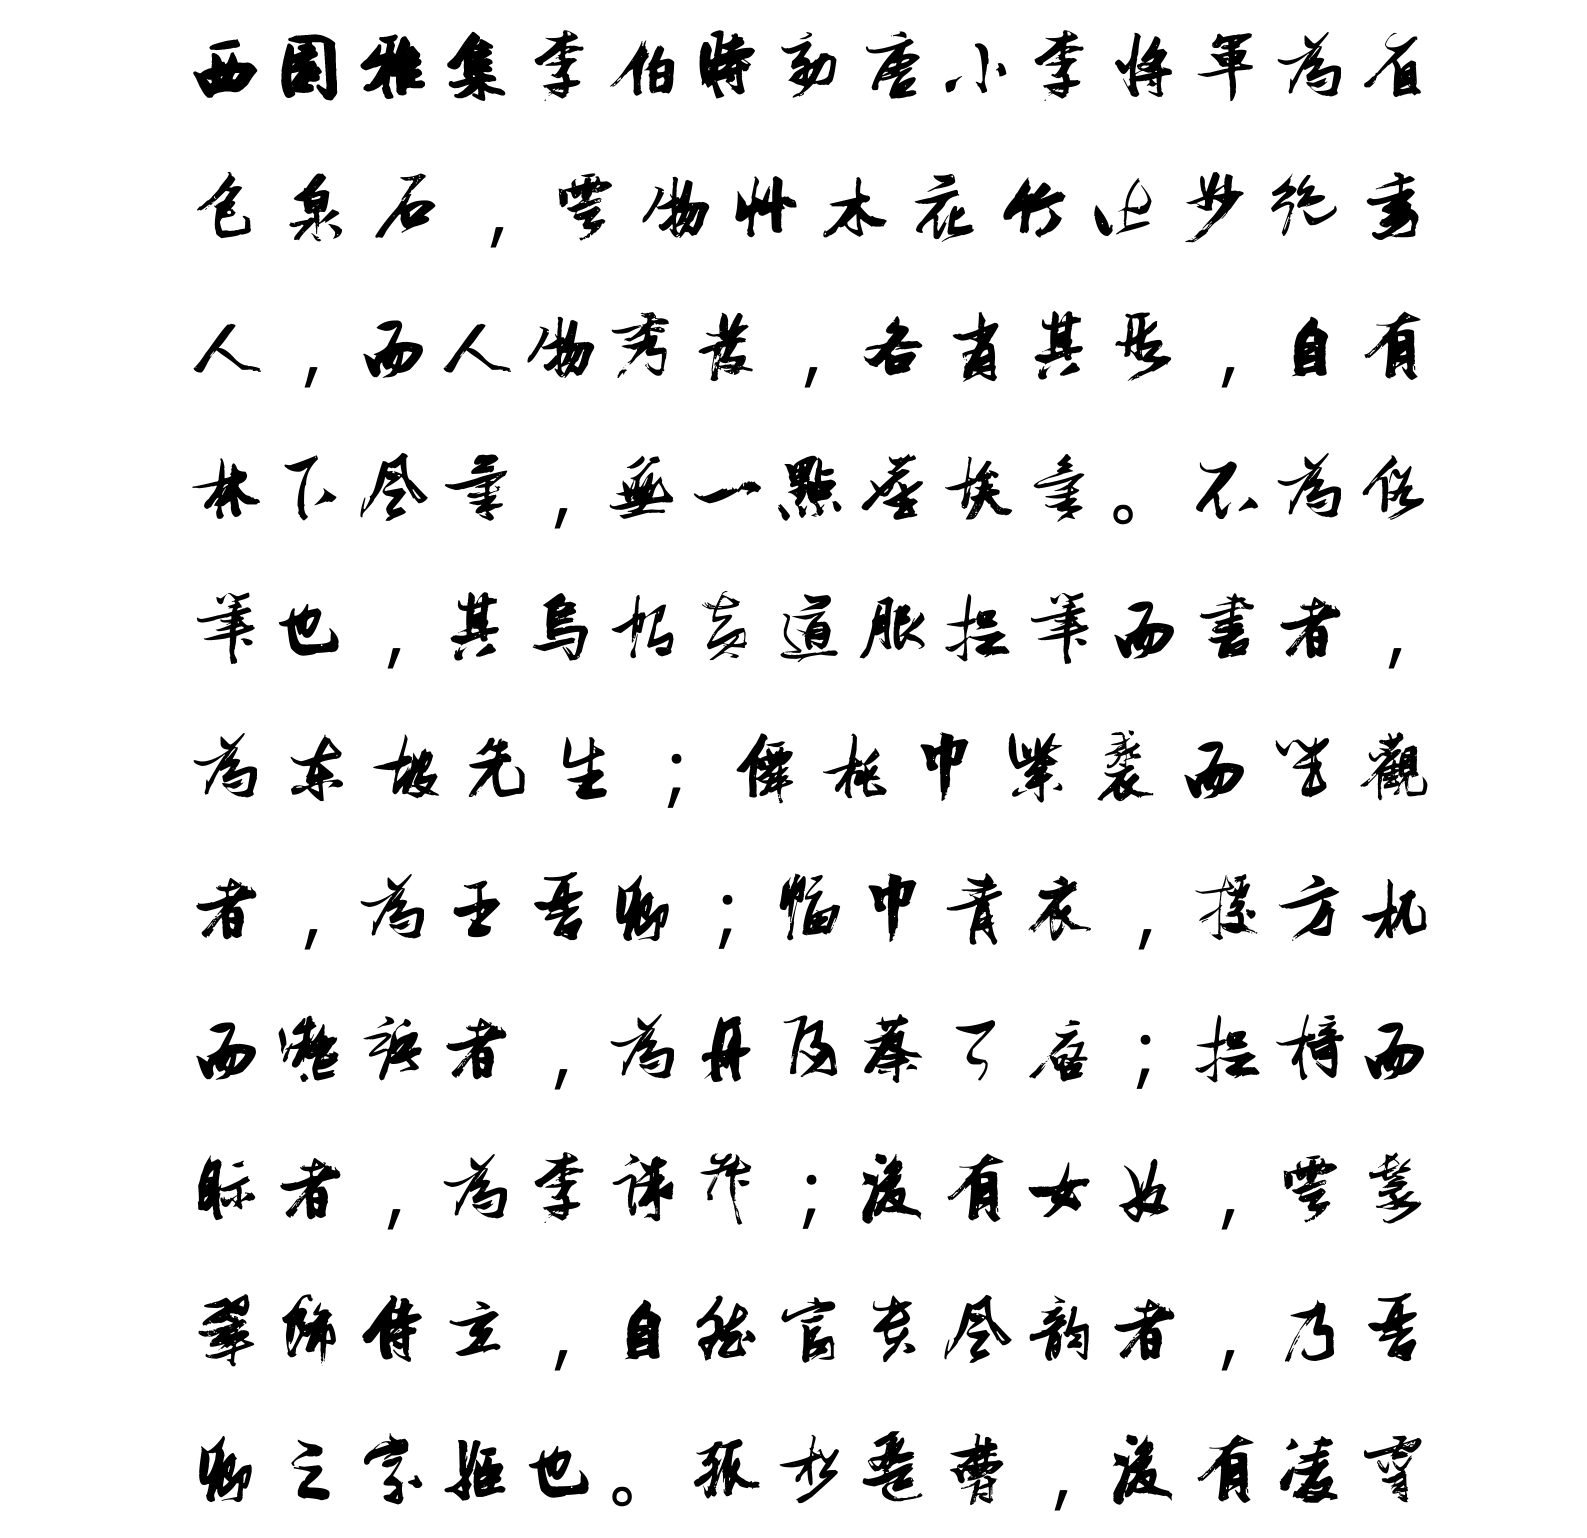 西園雅集李伯時効唐小李將軍為着
色泉石，雲物艸木花竹皆妙絶動
人，而人物秀發，各肖其形，自有
林下风味，無一點塵埃氣。不為俗
筆也，其烏帽黃道服捉筆而書者，
為东坡先生；僊桃巾紫裘而坐觀
者，為王晉卿；幅巾青衣，據方机
而凝竚者，為丹陽蔡天啓；捉椅而
眎者，為李端叔；後有女奴，雲鬟
翠飾侍立，自然富貴风韵者，乃晉
卿之家姬也。孤松盤鬱，後有凌霄